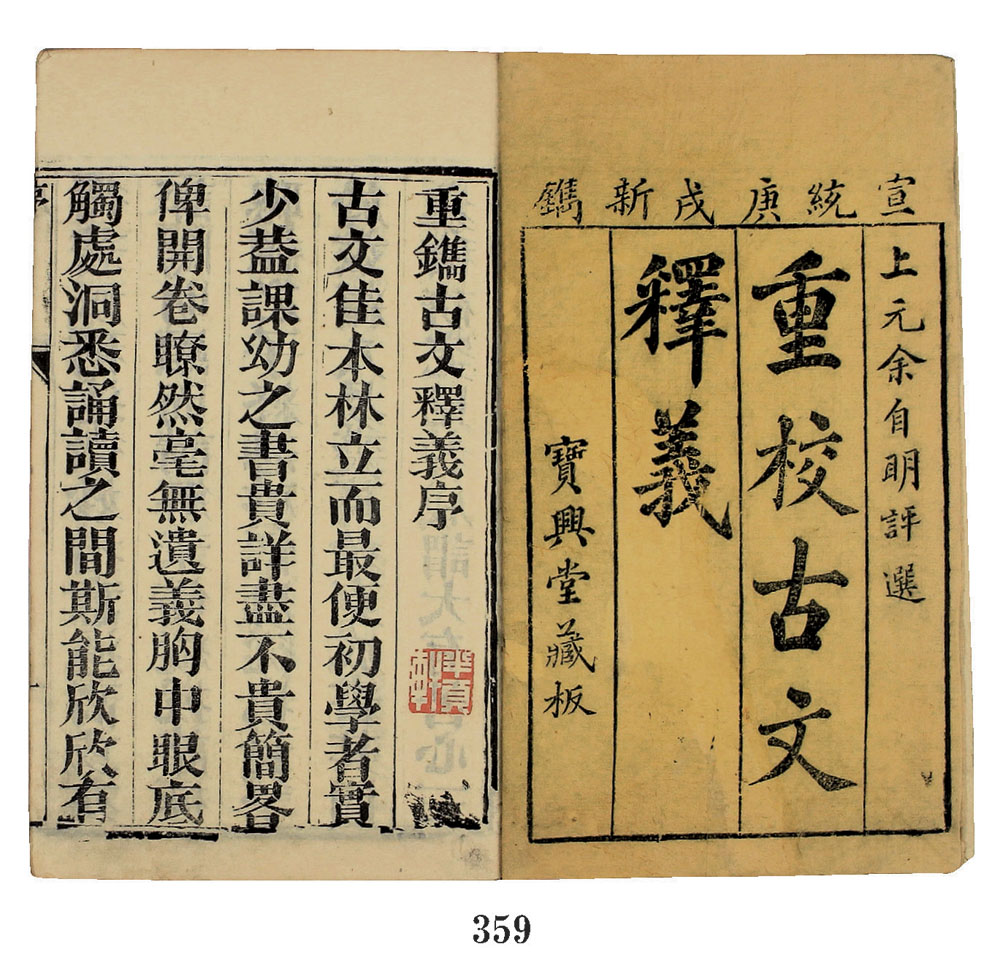 宣統庚戌新鐫
上元余自明評選
重校古文
釋義
寶興堂藏板
重鐫古文釋義序
古文佳本林立而最便初學者實
少葢課幼之書貴詳盡不貴簡畧
俾開卷瞭然毫無遺義胸中眼底
觸處洞悉誦讀之間斯能欣欣有
359